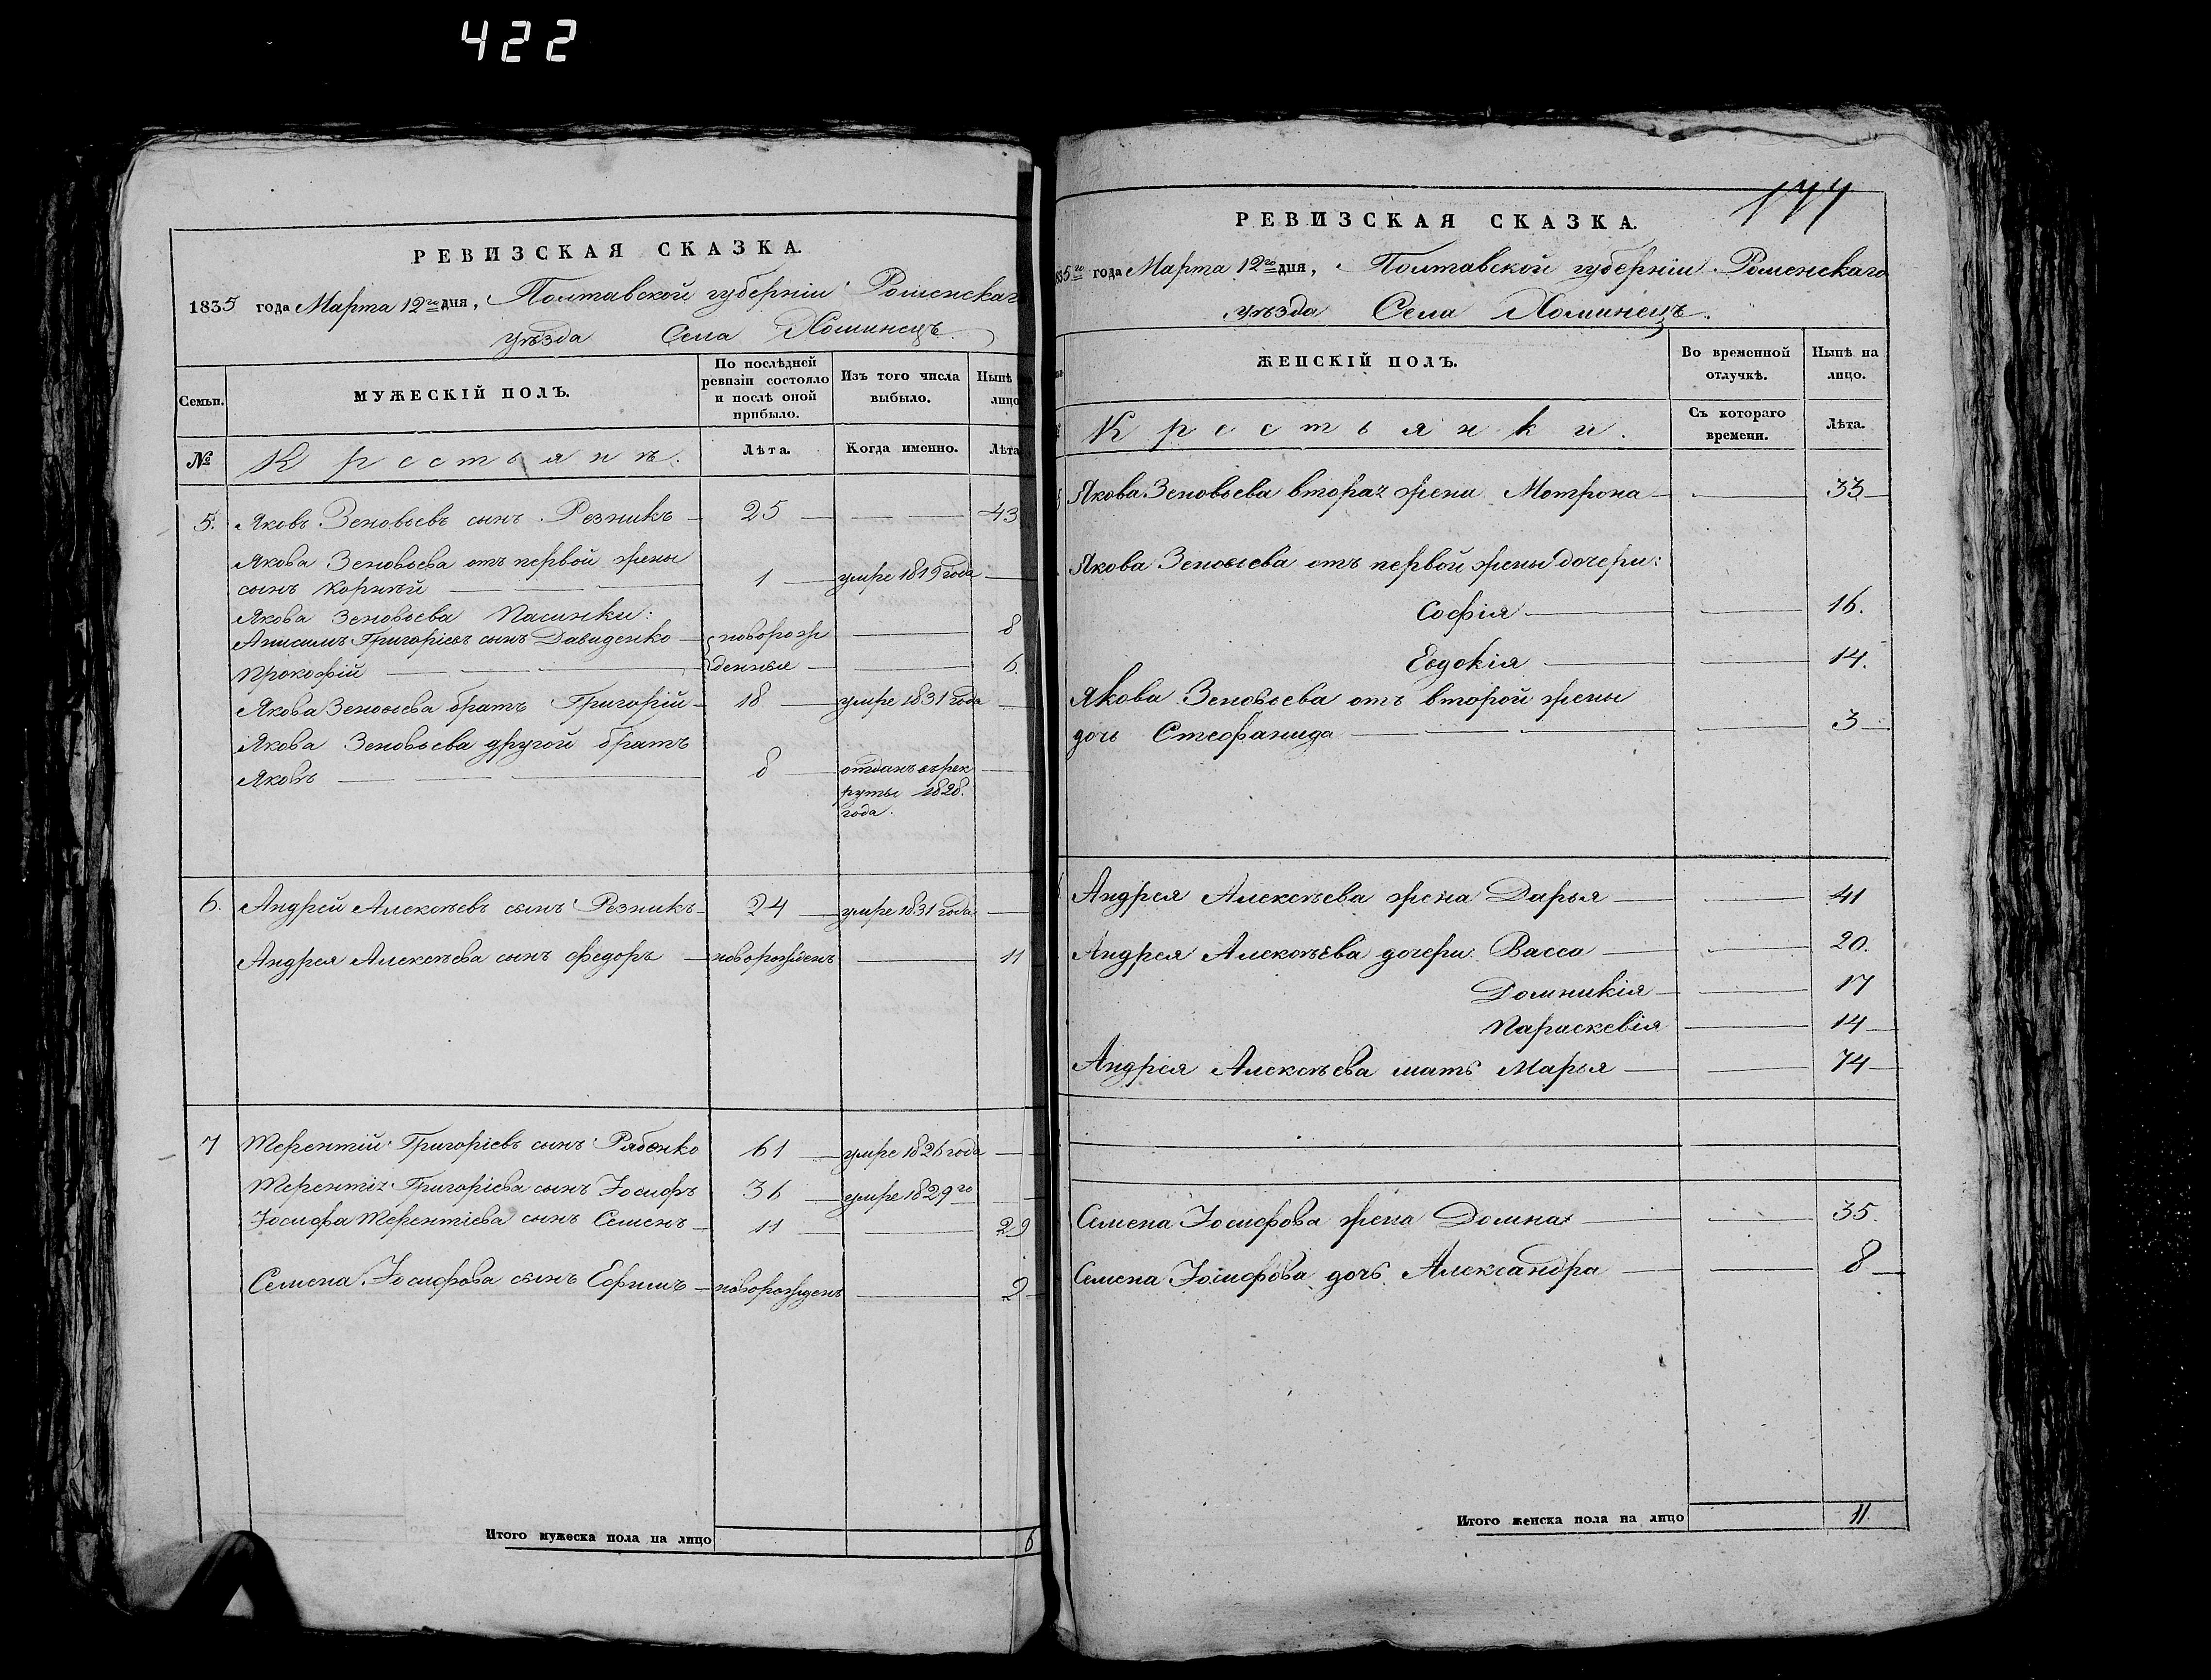 422
РЕВИЗСКАЯ СКАЗКА.
1835 года Марта 12го дня, Полтавской губерніи Роменскаго
уѣзда Села Хоминецъ.
Семьи.
МУЖЕСКІЙ ПОЛЪ.
По послѣдней ревизіи состояло и послѣ оной прибыло.
Изъ того числа выбыло.
Нынѣ лицо
№ Крестьянъ. Лѣта. Когда именно. Лѣта
5. Яковъ Зеновьевъ сынъ Резникъ 25 — 43
Якова Зеновьева отъ первой жены
сынъ Корнѣй — 1 — умре 1819 года —
Якова Зеновьева Пасинки:
Анисимъ Григоріевъ сынъ Давиденко — новорож — 8
Прокофій — денные — 6.
Якова Зеновьева братъ Григорій — 18 — умре 1831 года —
Якова Зеновьева другой братъ
Яковъ — 8 — отданъ въ рек
руты 1828.
года.
6. Андрей Алексѣевъ сынъ Резникъ — 24 — умре 1831 года —
Андрея Алексѣева сынъ Федоръ — новорожденъ — 11
7 Терентій Григоріевъ сынъ Рябенко 61 — умре 1826 года —
Терентія Григоріева сынъ Іосифъ 36 — умре 1829 го —
Іосифа Терентіева сынъ Семенъ — 11 — 29
Семена Іосифова сынъ Ефимъ — новорожденъ — 2
Итого мужеска пола на лицо 6
144
РЕВИЗСКАЯ СКАЗКА.
1835го года Марта 12го дня, Полтавской губерніи Роменскаго
уѣзда Села Хоминецъ.
ЖЕНСКІЙ ПОЛЪ.
Во временной отлучкѣ.
Нынѣ на лицо.
Крестьянки.
Съ котораго времени.
Лѣта.
Якова Зеновьева втораз жена Мотрона — 33
Якова Зеновьева отъ первой жены дочери:
Софія — 16.
Евдокія — 14.
Якова Зеновьева отъ второй жены
дочь Стеофанида — 3
Андрея Алексѣева жена Дарья — 41
Андрея Алексѣева дочери: Васса — 20.
Домникія — 17
Параскевія — 14
Андрея Алексѣева мать Марья — 74
Семена Іосифова жена Домна — 35.
Семена Іосифова дочь Александра — 8
Итого женска пола на лицо 11.